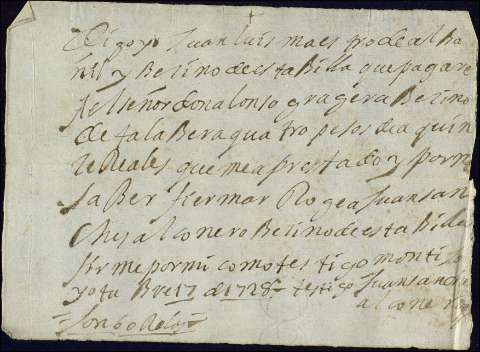 Digo yo Juan luis maestro de alba
ñil y Becino de esta Billa que pagare
al señor don alonso gragera Becino
de talabera quatro pesos de a quin
ce Reales que me a prestado y por no
saBer firmar Rogea Juan san
ches alconero Becino de esta Billa
firme por mi como testigo montijo
y otuBre 17 de 1728 = testigo Juan sanches
alconero